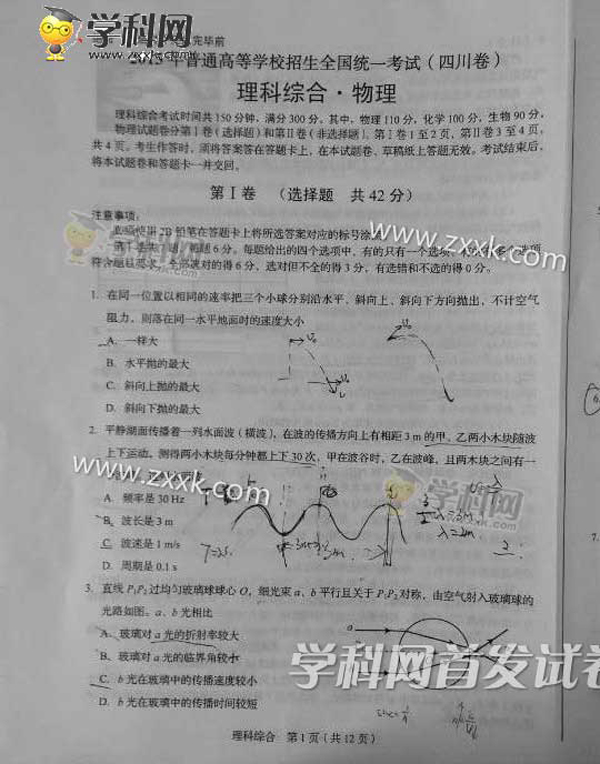 学科网
www.zxxk.com
完毕前
年普通高等学校招生全国统一考试（四川卷）
理科综合·物理
理科综合考试时间共150分钟，满分300分。其中，物理110分，化学100分，生物90分。
物理试题卷分第Ⅰ卷（选择题）和第Ⅱ卷（非选择题）。第Ⅰ卷1至2页，第Ⅱ卷3至4页，
共4页。考生作答时，须将答案答在答题卡上，在本试题卷、草稿纸上答题无效。考试结束后，
将本试题卷和答题卡一并交回。
第Ⅰ卷 （选择题 共42分）
注意事项：
必须使用2B铅笔在答题卡上将所选答案对应的标号涂
第Ⅰ卷共7题，每题6分。每题给出的四个选项中，有的只有一个选项、有的有多个选项
符合题目要求，全部选对的得6分，选对但不全的得3分，有选错和不选的得0分。
www.zxxk.com
学科网
1. 在同一位置以相同的速率把三个小球分别沿水平、斜向上、斜向下方向抛出，不计空气
阻力，则落在同一水平地面时的速度大小
A. 一样大
B. 水平抛的最大
C. 斜向上抛的最大
D. 斜向下抛的最大
2. 平静湖面传播着一列水面波（横波），在波的传播方向上有相距3 m的甲、乙两小木块随波
上下运动，测得两小木块每分钟都上下30次，甲在波谷时，乙在波峰，且两木块之间有一
www.zxxk.com
学科网
A. 频率是30 Hz
B. 波长是3 m
C. 波速是1 m/s
D. 周期是0.1 s
T=2s
λ=2m
3. 直线P₁P₂过均匀玻璃球球心O，细光束a、b平行且关于P₁P₂对称，由空气射入玻璃球的
光路如图。a、b光相比
A. 玻璃对a光的折射率较大
B. 玻璃对a光的临界角较小
C. b光在玻璃中的传播速度较小
D. b光在玻璃中的传播时间较短
学科网首发试卷
理科综合 第1页（共12页）
6.
7.